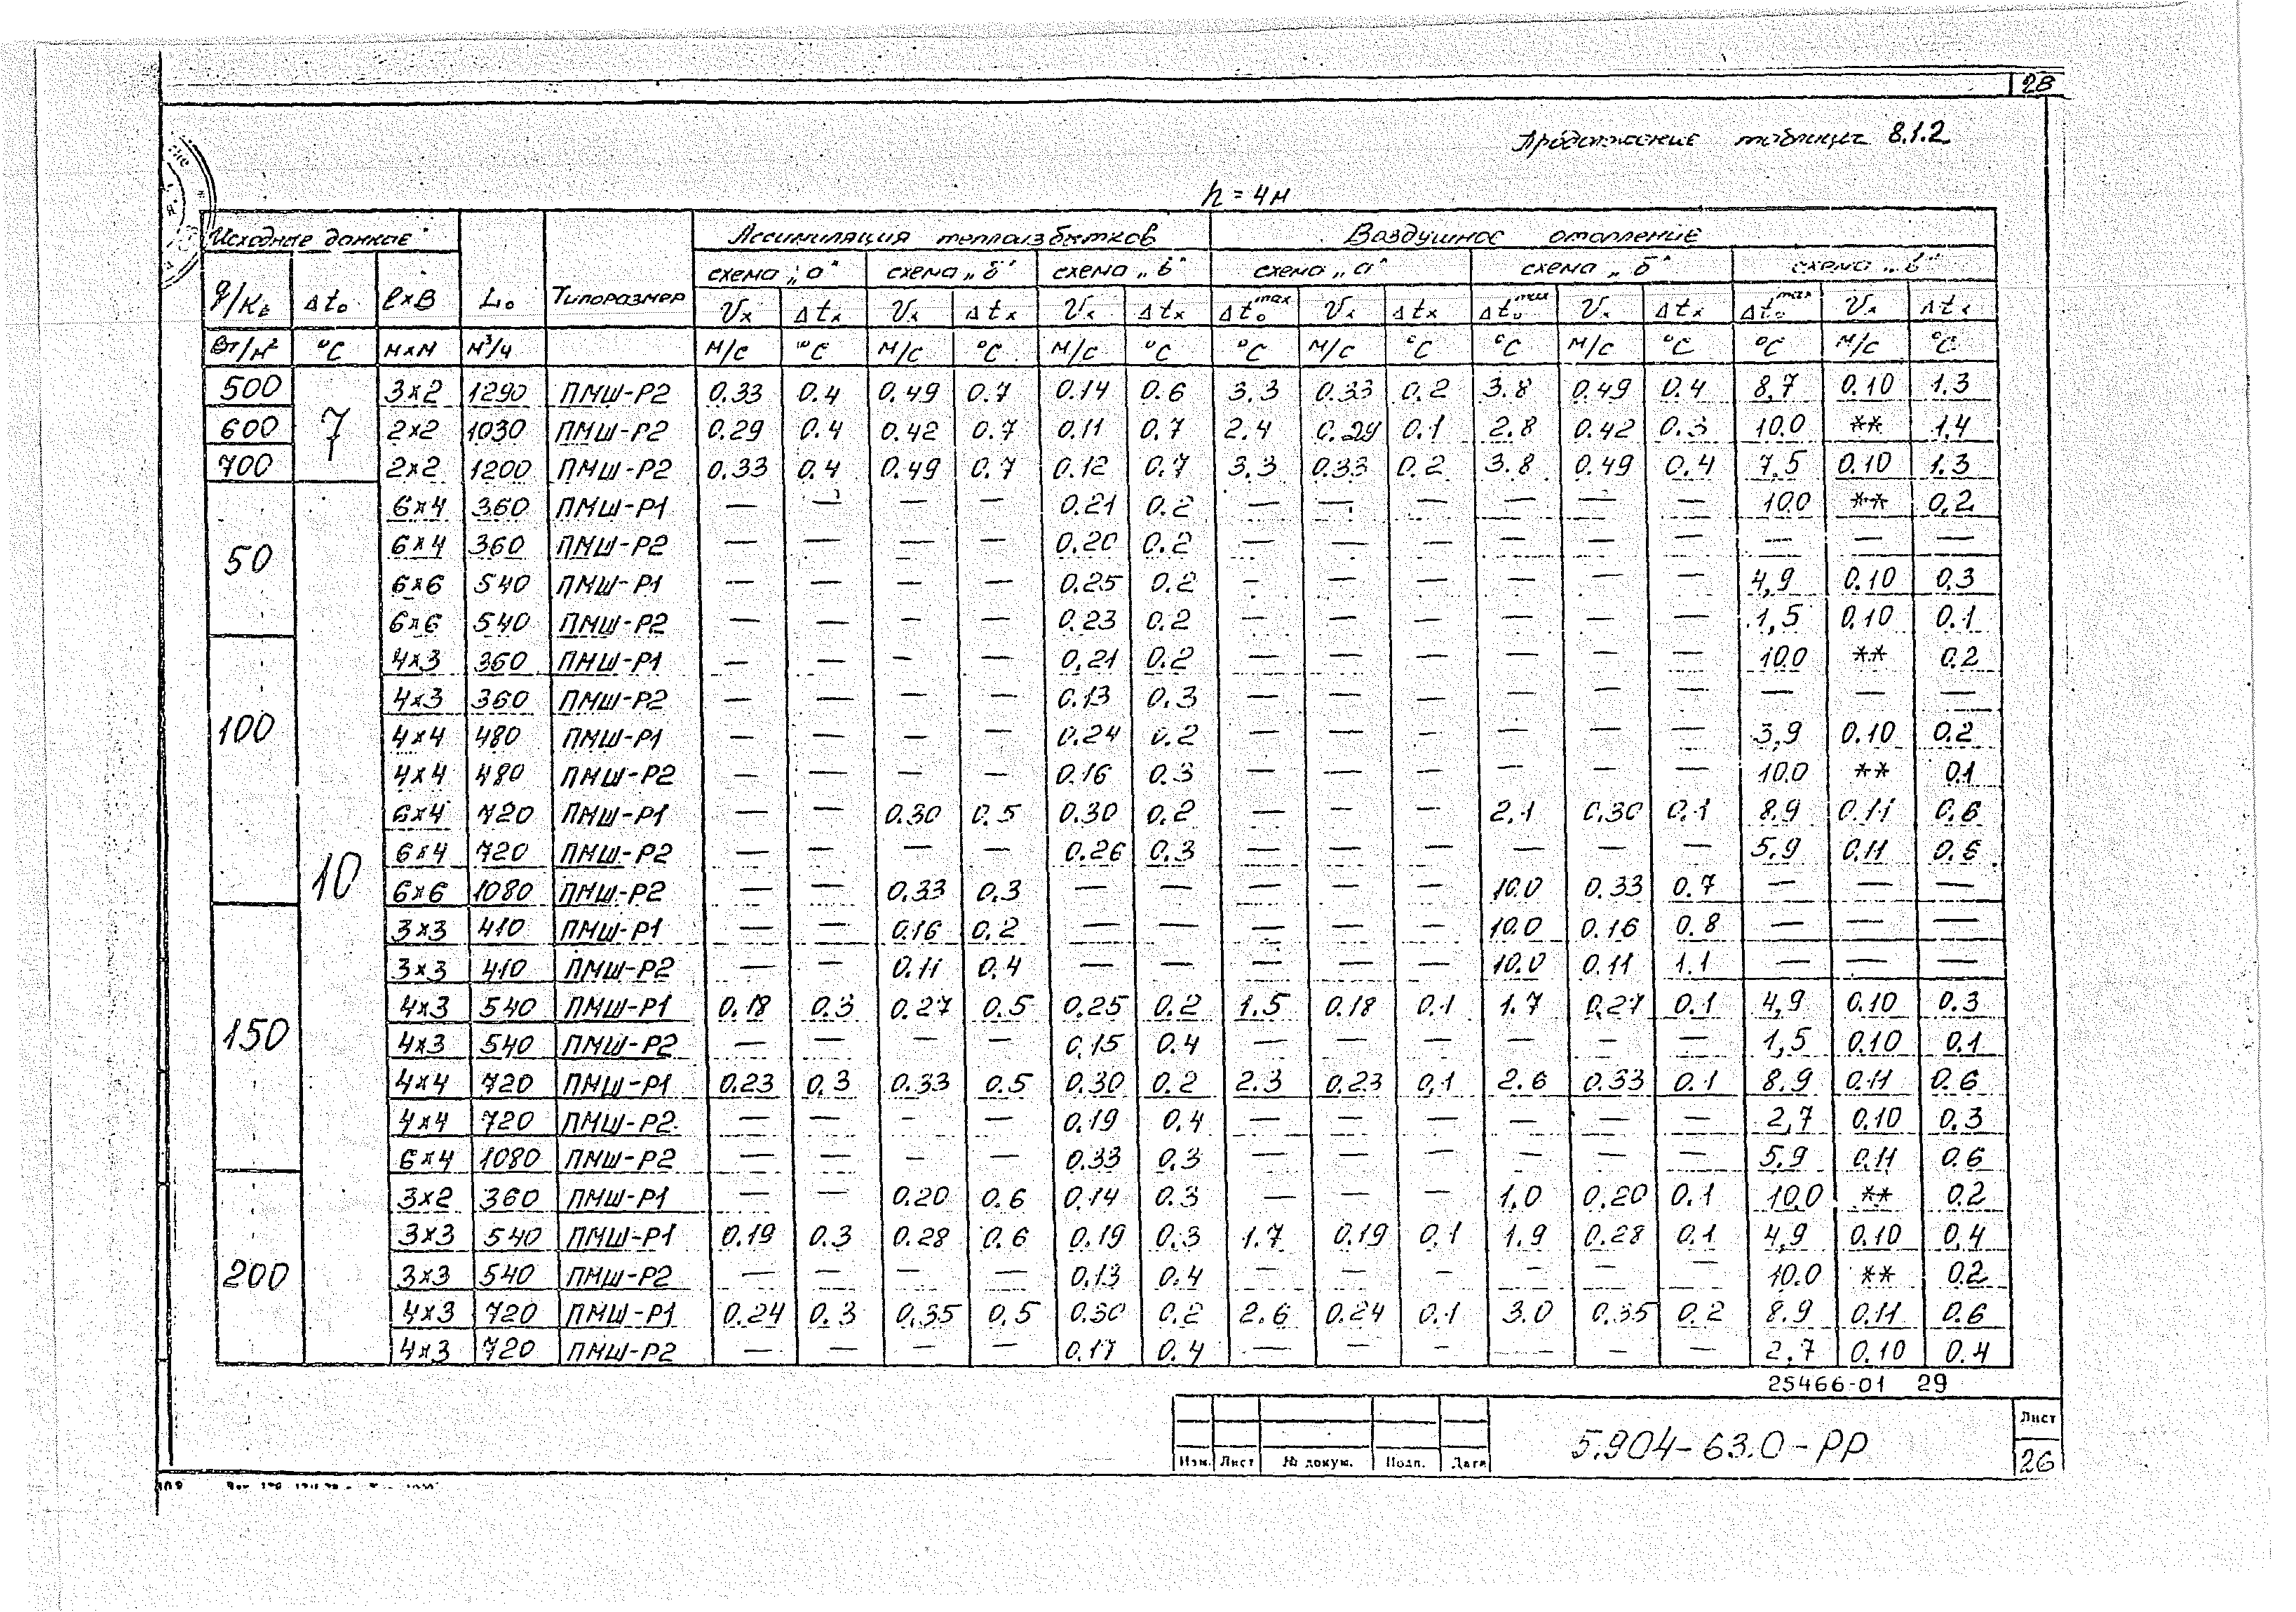 28
Продолжение таблицы 8.1.2
h = 4м
Исходные данные | L₀ | Типоразмер | Ассимиляция теплоизбытков | Воздушное отопление
схема „а“ | схема „б“ | схема „в“ | схема „а“ | схема „б“ | схема „в“
q/Kв | Δt₀ | ℓxB | Vx | Δtx | Vx | Δtx | Vx | Δtx | Δt₀max | Vx | Δtx | Δt₀max | Vx | Δtx | Δt₀max | Vx | Δtx
Вт/м² | °C | мxм | м³/ч | м/с | °C | м/с | °C | м/с | °C | °C | м/с | °C | °C | м/с | °C | °C | м/с | °C
500 | 7 | 3x2 | 1290 | ПМШ-Р2 | 0.33 | 0.4 | 0.49 | 0.7 | 0.14 | 0.6 | 3.3 | 0.33 | 0.2 | 3.8 | 0.49 | 0.4 | 8,7 | 0.10 | 1.3
600 | 2x2 | 1030 | ПМШ-Р2 | 0.29 | 0.4 | 0.42 | 0.7 | 0.11 | 0.7 | 2.4 | 0.29 | 0.1 | 2.8 | 0.42 | 0.3 | 10.0 | ** | 1.4
700 | 2x2 | 1200 | ПМШ-Р2 | 0.33 | 0.4 | 0.49 | 0.7 | 0.12 | 0.7 | 3.3 | 0.33 | 0.2 | 3.8 | 0.49 | 0.4 | 7,5 | 0.10 | 1.3
50 | 10 | 6x4 | 360 | ПМШ-Р1 | — | — | — | — | 0.21 | 0.2 | — | — | — | — | — | — | 10.0 | ** | 0,2
6x4 | 360 | ПМШ-Р2 | — | — | — | — | 0.20 | 0.2 | — | — | — | — | — | — | — | — | —
6x6 | 540 | ПМШ-Р1 | — | — | — | — | 0.25 | 0.2 | — | — | — | — | — | — | 4,9 | 0.10 | 0.3
6x6 | 540 | ПМШ-Р2 | — | — | — | — | 0.23 | 0.2 | — | — | — | — | — | — | 1,5 | 0.10 | 0.1
100 | 4x3 | 360 | ПМШ-Р1 | — | — | — | — | 0.21 | 0.2 | — | — | — | — | — | — | 10.0 | ** | 0.2
4x3 | 360 | ПМШ-Р2 | — | — | — | — | 0.13 | 0.3 | — | — | — | — | — | — | — | — | —
4x4 | 480 | ПМШ-Р1 | — | — | — | — | 0.24 | 0.2 | — | — | — | — | — | — | 3,9 | 0.10 | 0.2
4x4 | 480 | ПМШ-Р2 | — | — | — | — | 0.16 | 0.3 | — | — | — | — | — | — | 10.0 | ** | 0.1
6x4 | 720 | ПМШ-Р1 | — | — | 0.30 | 0.5 | 0.30 | 0.2 | — | — | — | 2.1 | 0.30 | 0.1 | 8.9 | 0.11 | 0.6
6x4 | 720 | ПМШ-Р2 | — | — | — | — | 0.26 | 0.3 | — | — | — | — | — | — | 5.9 | 0.11 | 0.6
6x6 | 1080 | ПМШ-Р2 | — | — | 0.33 | 0.3 | — | — | — | — | — | 10.0 | 0.33 | 0.7 | — | — | —
150 | 3x3 | 410 | ПМШ-Р1 | — | — | 0.16 | 0.2 | — | — | — | — | — | 10.0 | 0.16 | 0.8 | — | — | —
3x3 | 410 | ПМШ-Р2 | — | — | 0.11 | 0.4 | — | — | — | — | — | 10.0 | 0.11 | 1.1 | — | — | —
4x3 | 540 | ПМШ-Р1 | 0.18 | 0.3 | 0.27 | 0.5 | 0.25 | 0.2 | 1.5 | 0.18 | 0.1 | 1.7 | 0.27 | 0.1 | 4,9 | 0.10 | 0.3
4x3 | 540 | ПМШ-Р2 | — | — | — | — | 0.15 | 0.4 | — | — | — | — | — | — | 1,5 | 0.10 | 0.1
4x4 | 720 | ПМШ-Р1 | 0.23 | 0.3 | 0.33 | 0.5 | 0.30 | 0.2 | 2.3 | 0.23 | 0,1 | 2.6 | 0.33 | 0.1 | 8.9 | 0.11 | 0.6
4x4 | 720 | ПМШ-Р2 | — | — | — | — | 0.19 | 0.4 | — | — | — | — | — | — | 2,7 | 0.10 | 0.3
6x4 | 1080 | ПМШ-Р2 | — | — | — | — | 0.33 | 0.3 | — | — | — | — | — | — | 5.9 | 0.11 | 0.6
200 | 3x2 | 360 | ПМШ-Р1 | — | — | 0.20 | 0.6 | 0.14 | 0.3 | — | — | — | 1,0 | 0.20 | 0.1 | 10.0 | ** | 0.2
3x3 | 540 | ПМШ-Р1 | 0.19 | 0.3 | 0.28 | 0.6 | 0.19 | 0.3 | 1.7 | 0.19 | 0.1 | 1.9 | 0.28 | 0.1 | 4,9 | 0.10 | 0,4
3x3 | 540 | ПМШ-Р2 | — | — | — | — | 0.13 | 0.4 | — | — | — | — | — | — | 10.0 | ** | 0.2
4x3 | 720 | ПМШ-Р1 | 0.24 | 0.3 | 0.35 | 0.5 | 0.30 | 0.2 | 2.6 | 0.24 | 0.1 | 3.0 | 0.35 | 0.2 | 8.9 | 0.11 | 0.6
4x3 | 720 | ПМШ-Р2 | — | — | — | — | 0.17 | 0.4 | — | — | — | — | — | — | 2.7 | 0.10 | 0.4
25466-01 29
5.904-63.0-РР
Лист
26
Изм. Лист № докум. Подп. Дата